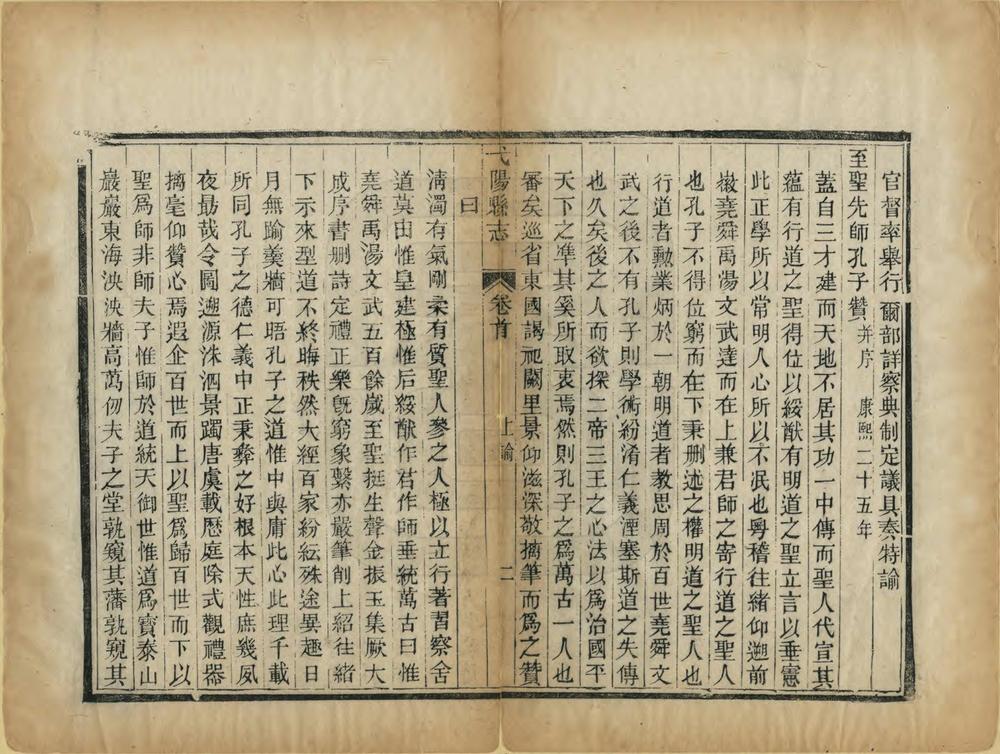 官督率舉行爾部詳察典制定議具奏特諭
至聖先師孔子贊并序 康熙二十五年
蓋自三才建而天地不居其功一中傳而聖人代宣其
蘊有行道之聖得位以綏猷有明道之聖立言以垂憲
此正學所以常明人心所以不泯也粵稽往緒仰遡前
徽堯舜禹湯文武達而在上兼君師之寄行道之聖人
也孔子不得位窮而在下秉刪述之權明道之聖人也
行道者勳業炳於一朝明道者教思周於百世堯舜文
武之後不有孔子則學術紛淆仁義湮塞斯道之失傳
也久矣後之人而欲探二帝三王之心法以爲治國平
天下之準其奚所取衷焉然則孔子之爲萬古一人也
審矣巡省東國謁祀闕里景仰滋深敬摛筆而爲之贊
弋陽縣志 卷首 上諭 二
曰
清濁有氣剛柔有質聖人參之人極以立行著習察舍
道莫由惟皇建極惟后綏猷作君作師垂統萬古曰惟
堯舜禹湯文武五百餘歲至聖挺生聲金振玉集厥大
成序書刪詩定禮正樂旣窮象繫亦嚴筆削上紹往緒
下示來型道不終晦秩然大經百家紛紜殊途異趣日
月無踰羹牆可晤孔子之道惟中與庸此心此理千載
所同孔子之德仁義中正秉彝之好根本天性庶幾夙
夜勗哉令圖遡源洙泗景躅唐虞載歷庭除式觀禮器
摛毫仰贊心焉遐企百世而上以聖爲歸百世而下以
聖爲師非師夫子惟師於道統天御世惟道爲寶泰山
巖巖東海泱泱牆高萬仞夫子之堂孰窺其藩孰窺其